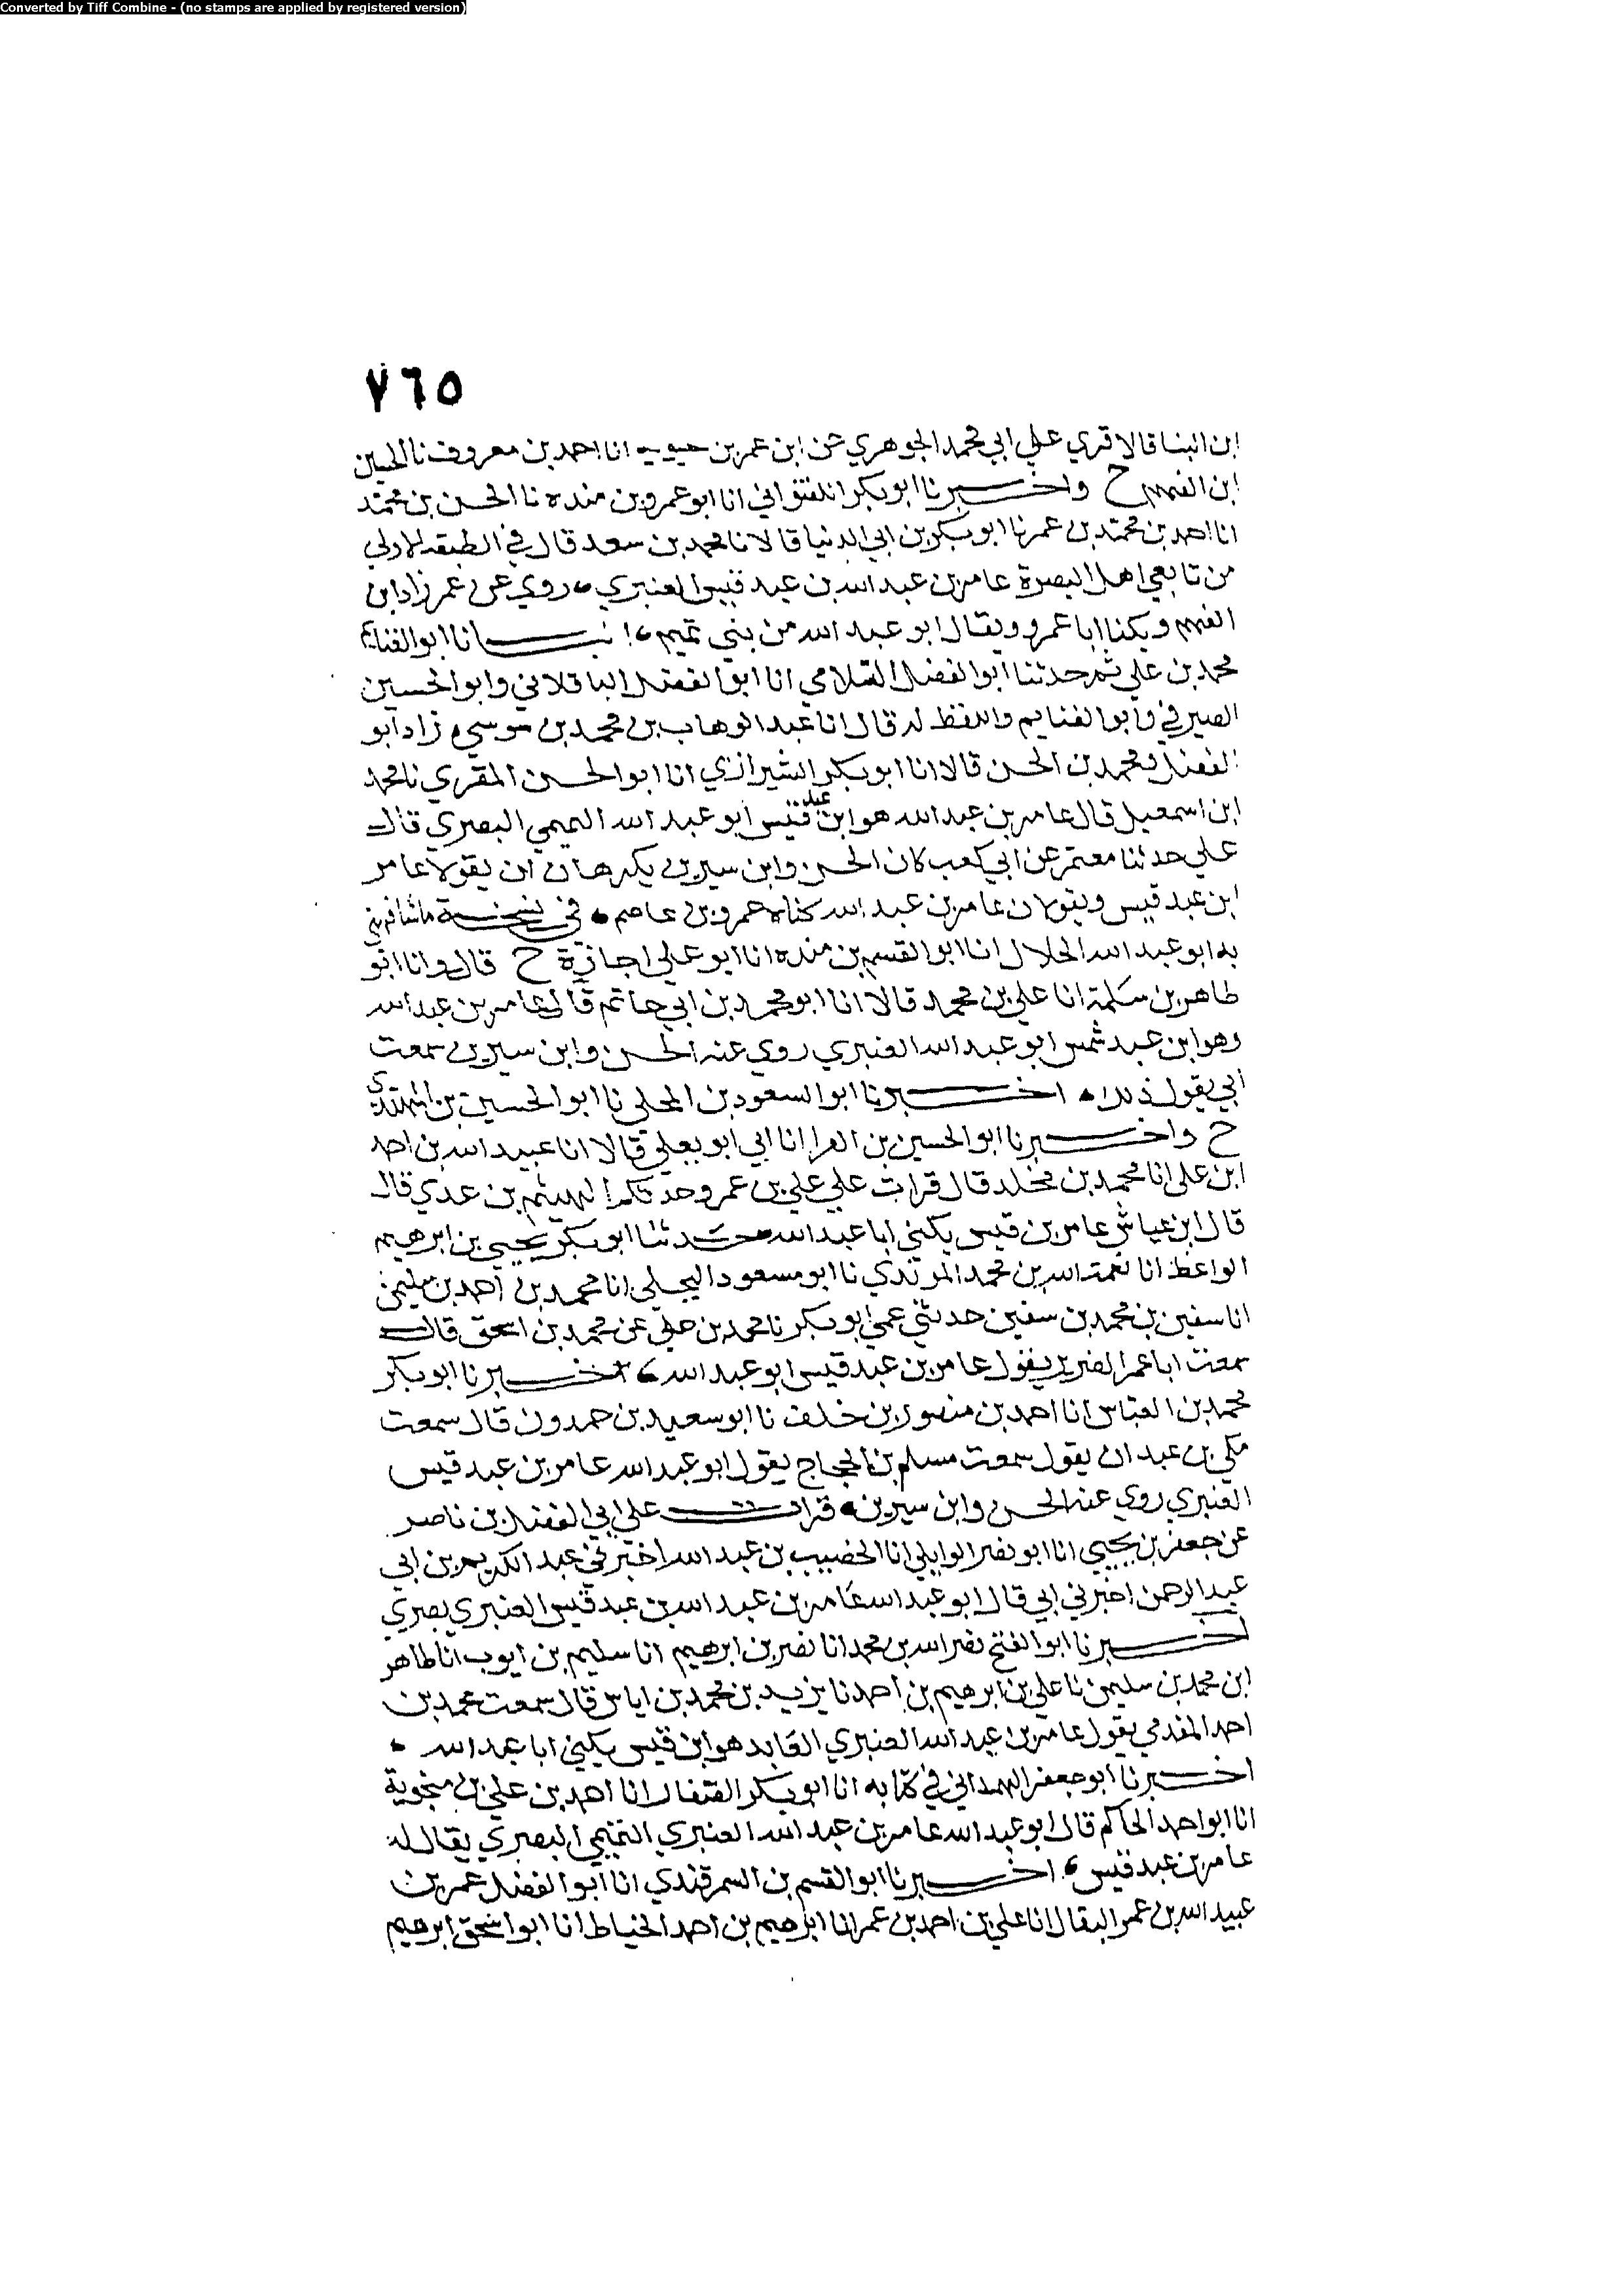 Converted by Tiff Combine - (no stamps are applied by registered version)
٧٦٥
ابن البنا قالا قري علي ابي محمد الجوهري عن ابن عمر بن حيويه انا احمد بن معروف نا الحسين
ابن الفهم ح واخبرنا ابو بكر اللفتواني انا ابو عمرو بن منده نا الحسن بن محمد
انا احمد بن محمد بن عمر نا ابو بكر بن ابي الدنيا قالا نا محمد بن سعد قال في الطبقه الاولي
من تابعي اهل البصرة عامر بن عبد الله بن عبد قيس العنبري روي عن عمر زاد ابن
الفهم ويكنا ابا عمرو ويقال ابو عبد الله من بني تميم انبانا ابو الغنايم
محمد بن علي ثم حدثنا ابو الفضل السلامي انا ابو الفضل الباقلاني وابو الحسين
الصيرفي وابو الغنايم واللفظ له قال انا عبد الوهاب بن محمد بن موسي زاد ابو
الفضل ومحمد بن الحسن قالا انا ابو بكر الشيرازي انا ابو الحسن المقري نا محمد
ابن اسمعيل قال عامر بن عبد الله هو ابن عبد قيس ابو عبد الله البصري قال
علي حدثنا معتمر عن ابي كعب كان الحسن وابن سيرين يكرهان ان يقولا عامر
ابن عبد قيس ويقولان عامر بن عبد الله كناه عمرو بن عاصم في نسخة ما شافهني
به ابو عبد الله الخلال انا ابو القسم بن منده انا ابو علي اجازة ح قال وانا ابو
طاهر بن سلمة انا علي بن محمد قالا انا ابو محمد بن ابي حاتم قال عامر بن عبد الله
وهو ابن عبد شمس ابو عبد الله العنبري روي عنه الحسن وابن سيرين سمعت
ابي يقول ذلك اخبرنا ابو السعود بن المجلي نا ابو الحسين بن المهتدي
ح واخبرنا ابو الحسين بن الفرا انا ابي ابو يعلي قالا انا عبيد الله بن احمد
ابن علي انا محمد بن مخلد قال قرات علي علي بن عمرو حدثكم الهيثم بن عدي قال
قال ابن عياش عامر بن قيس يكني ابا عبد الله حدثنا ابو بكر يحيي بن ابرهيم
الواعظ انا نعمة الله بن محمد المرثدي نا ابو مسعود البجلي انا محمد بن احمد بن سليمن
انا سفين بن محمد بن سفين حدثني عمي ابو بكر نا محمد بن علي عن محمد بن اسحق قال
سمعت ابا عمر الضرير يقول عامر بن عبد قيس ابو عبد الله اخبرنا ابو بكر
محمد بن العباس انا احمد بن منصور بن خلف نا ابو سعيد بن حمدون قال سمعت
مكي بن عبدان يقول سمعت مسلم بن الحجاج يقول ابو عبد الله عامر بن عبد قيس
العنبري روي عنه الحسن وابن سيرين قرات علي ابي الفضل بن ناصر
عن جعفر بن يحيي انا ابو نصر الوايلي انا الخصيب بن عبد الله اخبرني عبد الكريم بن ابي
عبد الرحمن اخبرني ابي قال ابو عبد الله عامر بن عبد الله بن عبد قيس العنبري بصري
اخبرنا ابو الفتح نصر الله بن محمد انا نصر بن ابرهيم انا سليم بن ايوب انا طاهر
ابن محمد بن سليمن نا علي بن ابرهيم بن احمد نا يزيد بن محمد بن اياس قال سمعت محمد بن
احمد المقدمي يقول عامر بن عبد الله العنبري العابد هو ابن قيس يكني ابا عبد الله
اخبرنا ابو جعفر الهمداني في كتابه انا ابو بكر الصفار انا احمد بن علي بن منجوية
انا ابو احمد الحاكم قال ابو عبد الله عامر بن عبد الله العنبري التميمي البصري يقال له
عامر بن عبد قيس اخبرنا ابو القسم بن السمرقندي انا ابو الفضل عمر بن
عبيد الله بن عمر البقال انا علي بن احمد بن عمر انا ابرهيم بن احمد الخياط انا ابو اسحق ابرهيم